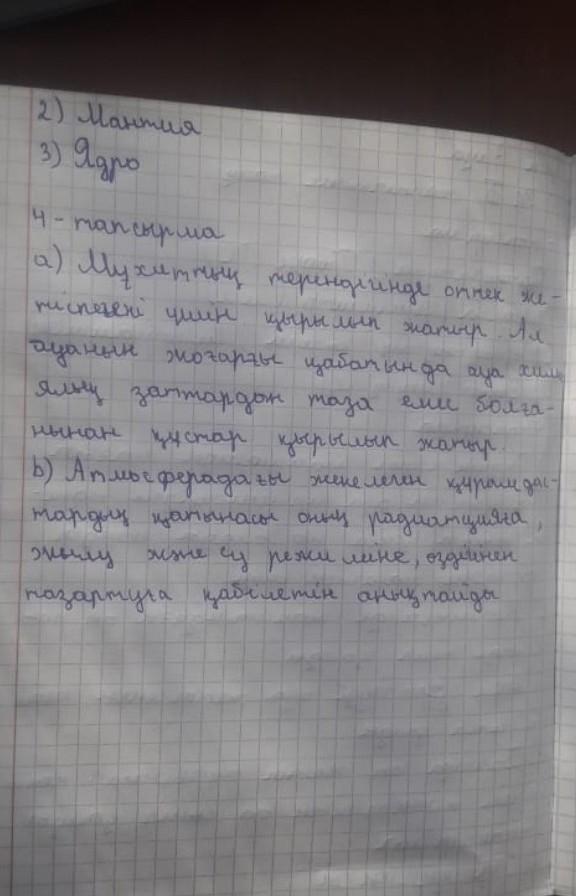 2) Мантия
3) Ядро
4 - тапсырма
а) Мұхиттың тереңдігінде оттек же-
тіспегені үшін қырылып жатыр. Ал
ауанын жоғарғы қабатында ауа хими
ялық заттардан таза емес болға-
нынан құстар қырылып жатыр.
b) Атмосферадағы жекелеген құрамдас-
тардың қатынасы оның радиатцияға,
жылу және су режиміне, өздігінен
тазартуға қабілетін анықтайды